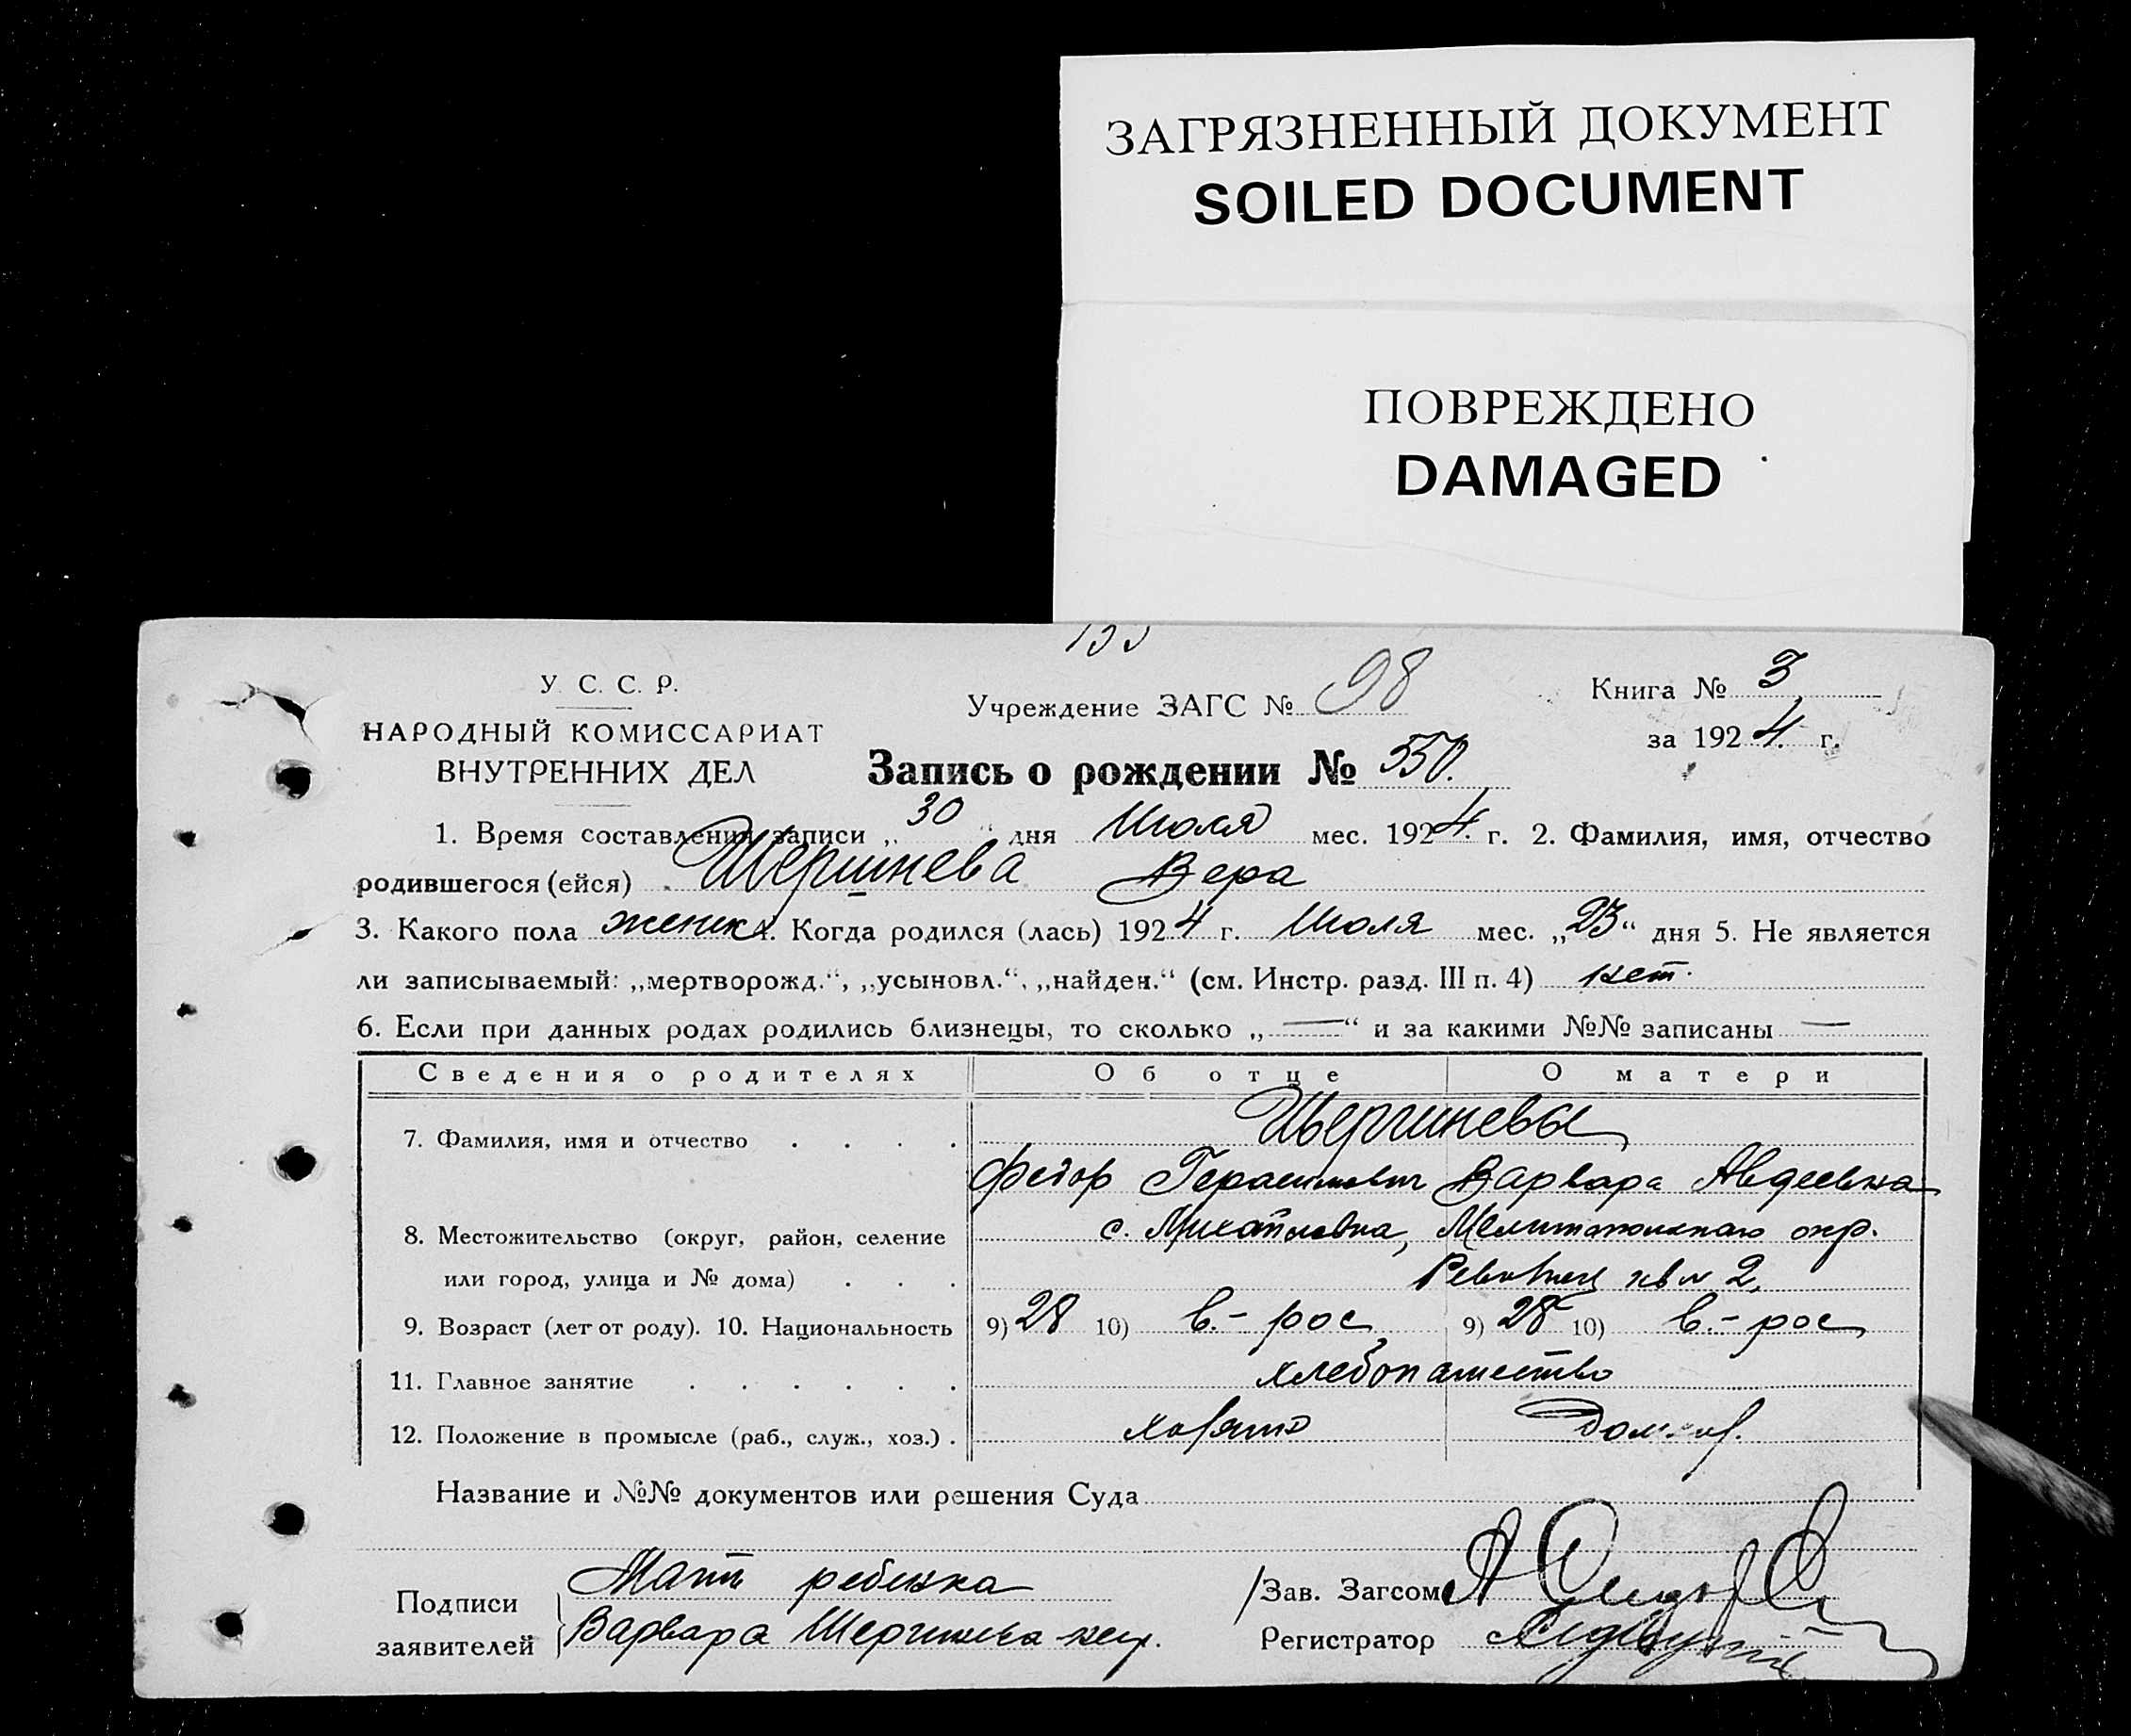 ЗАГРЯЗНЕННЫЙ ДОКУМЕНТ
SOILED DOCUMENT
ПОВРЕЖДЕНО
DAMAGED
У. С. С. Р.
НАРОДНЫЙ КОМИССАРИАТ
ВНУТРЕННИХ ДЕЛ
Учреждение ЗАГС № 98
Книга № 3
за 1924 г.
Запись о рождении № 550.
1. Время составления записи „30“ дня Июля мес. 1924 г. 2. Фамилия, имя, отчество
родившегося (ейся) Шершнева Вера
3. Какого пола женск 4. Когда родился (лась) 1924 г. Июля мес. „23“ дня 5. Не является
ли записываемый: „мертворожд.“, „усыновл.“, „найден.“ (см. Инстр. разд. III п. 4) нет.
6. Если при данных родах родились близнецы, то сколько „—“ и за какими №№ записаны —
Сведения о родителях Об отце О матери
7. Фамилия, имя и отчество . . . . Шершневы
Федор Герасимович Варвара Авдеевна
8. Местожительство (округ, район, селение с. Михайловка, Мелитопольского окр.
или город, улица и № дома) . . . кв № 2,
9. Возраст (лет от роду). 10. Национальность 9) 28 10) в.-рос 9) 28 10) в.-рос
11. Главное занятие . . . . . . хлебопашество
12. Положение в промысле (раб., служ., хоз.) . хозяин домхоз.
Название и №№ документов или решения Суда
Подписи заявителей Мать ребенка
Варвара Шершнева
Зав. Загсом
Регистратор